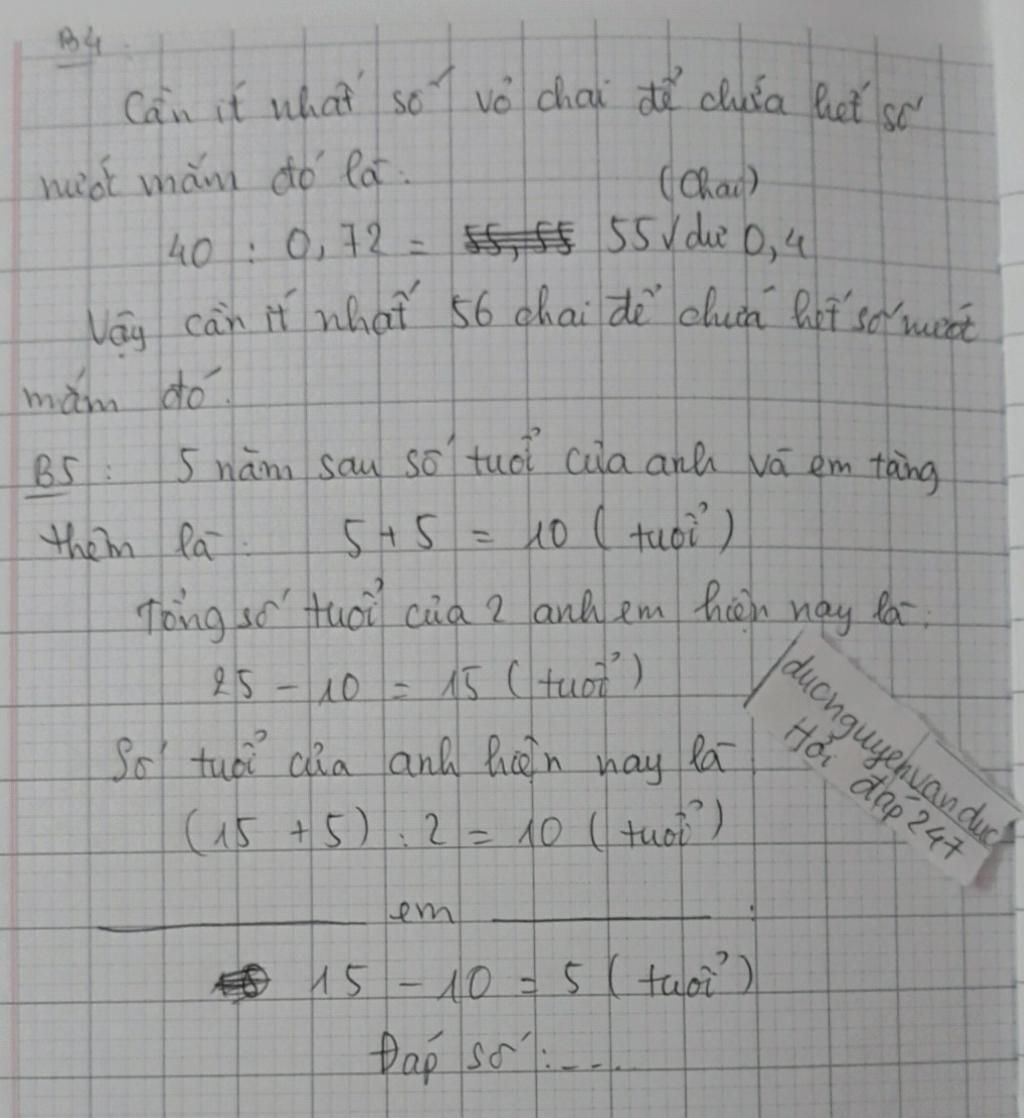 B4
Cần ít nhất số vỏ chai để chứa hết số
nước mắm đó là:
(Chai)
40 : 0,72 = 55,55 55 dư 0,4
Vậy cần ít nhất 56 chai để chứa hết số nước
mắm đó.
B5: 5 năm sau số tuổi của anh và em tăng
thêm là: 5 + 5 = 10 (tuổi)
Tổng số tuổi của 2 anh em hiện nay là:
25 - 10 = 15 (tuổi)
Số tuổi của anh hiện nay là
(15 + 5) : 2 = 10 (tuổi)
em :
15 - 10 = 5 (tuổi)
Đáp số: ...
ducnguyenvanduc
Hỏi đáp 247